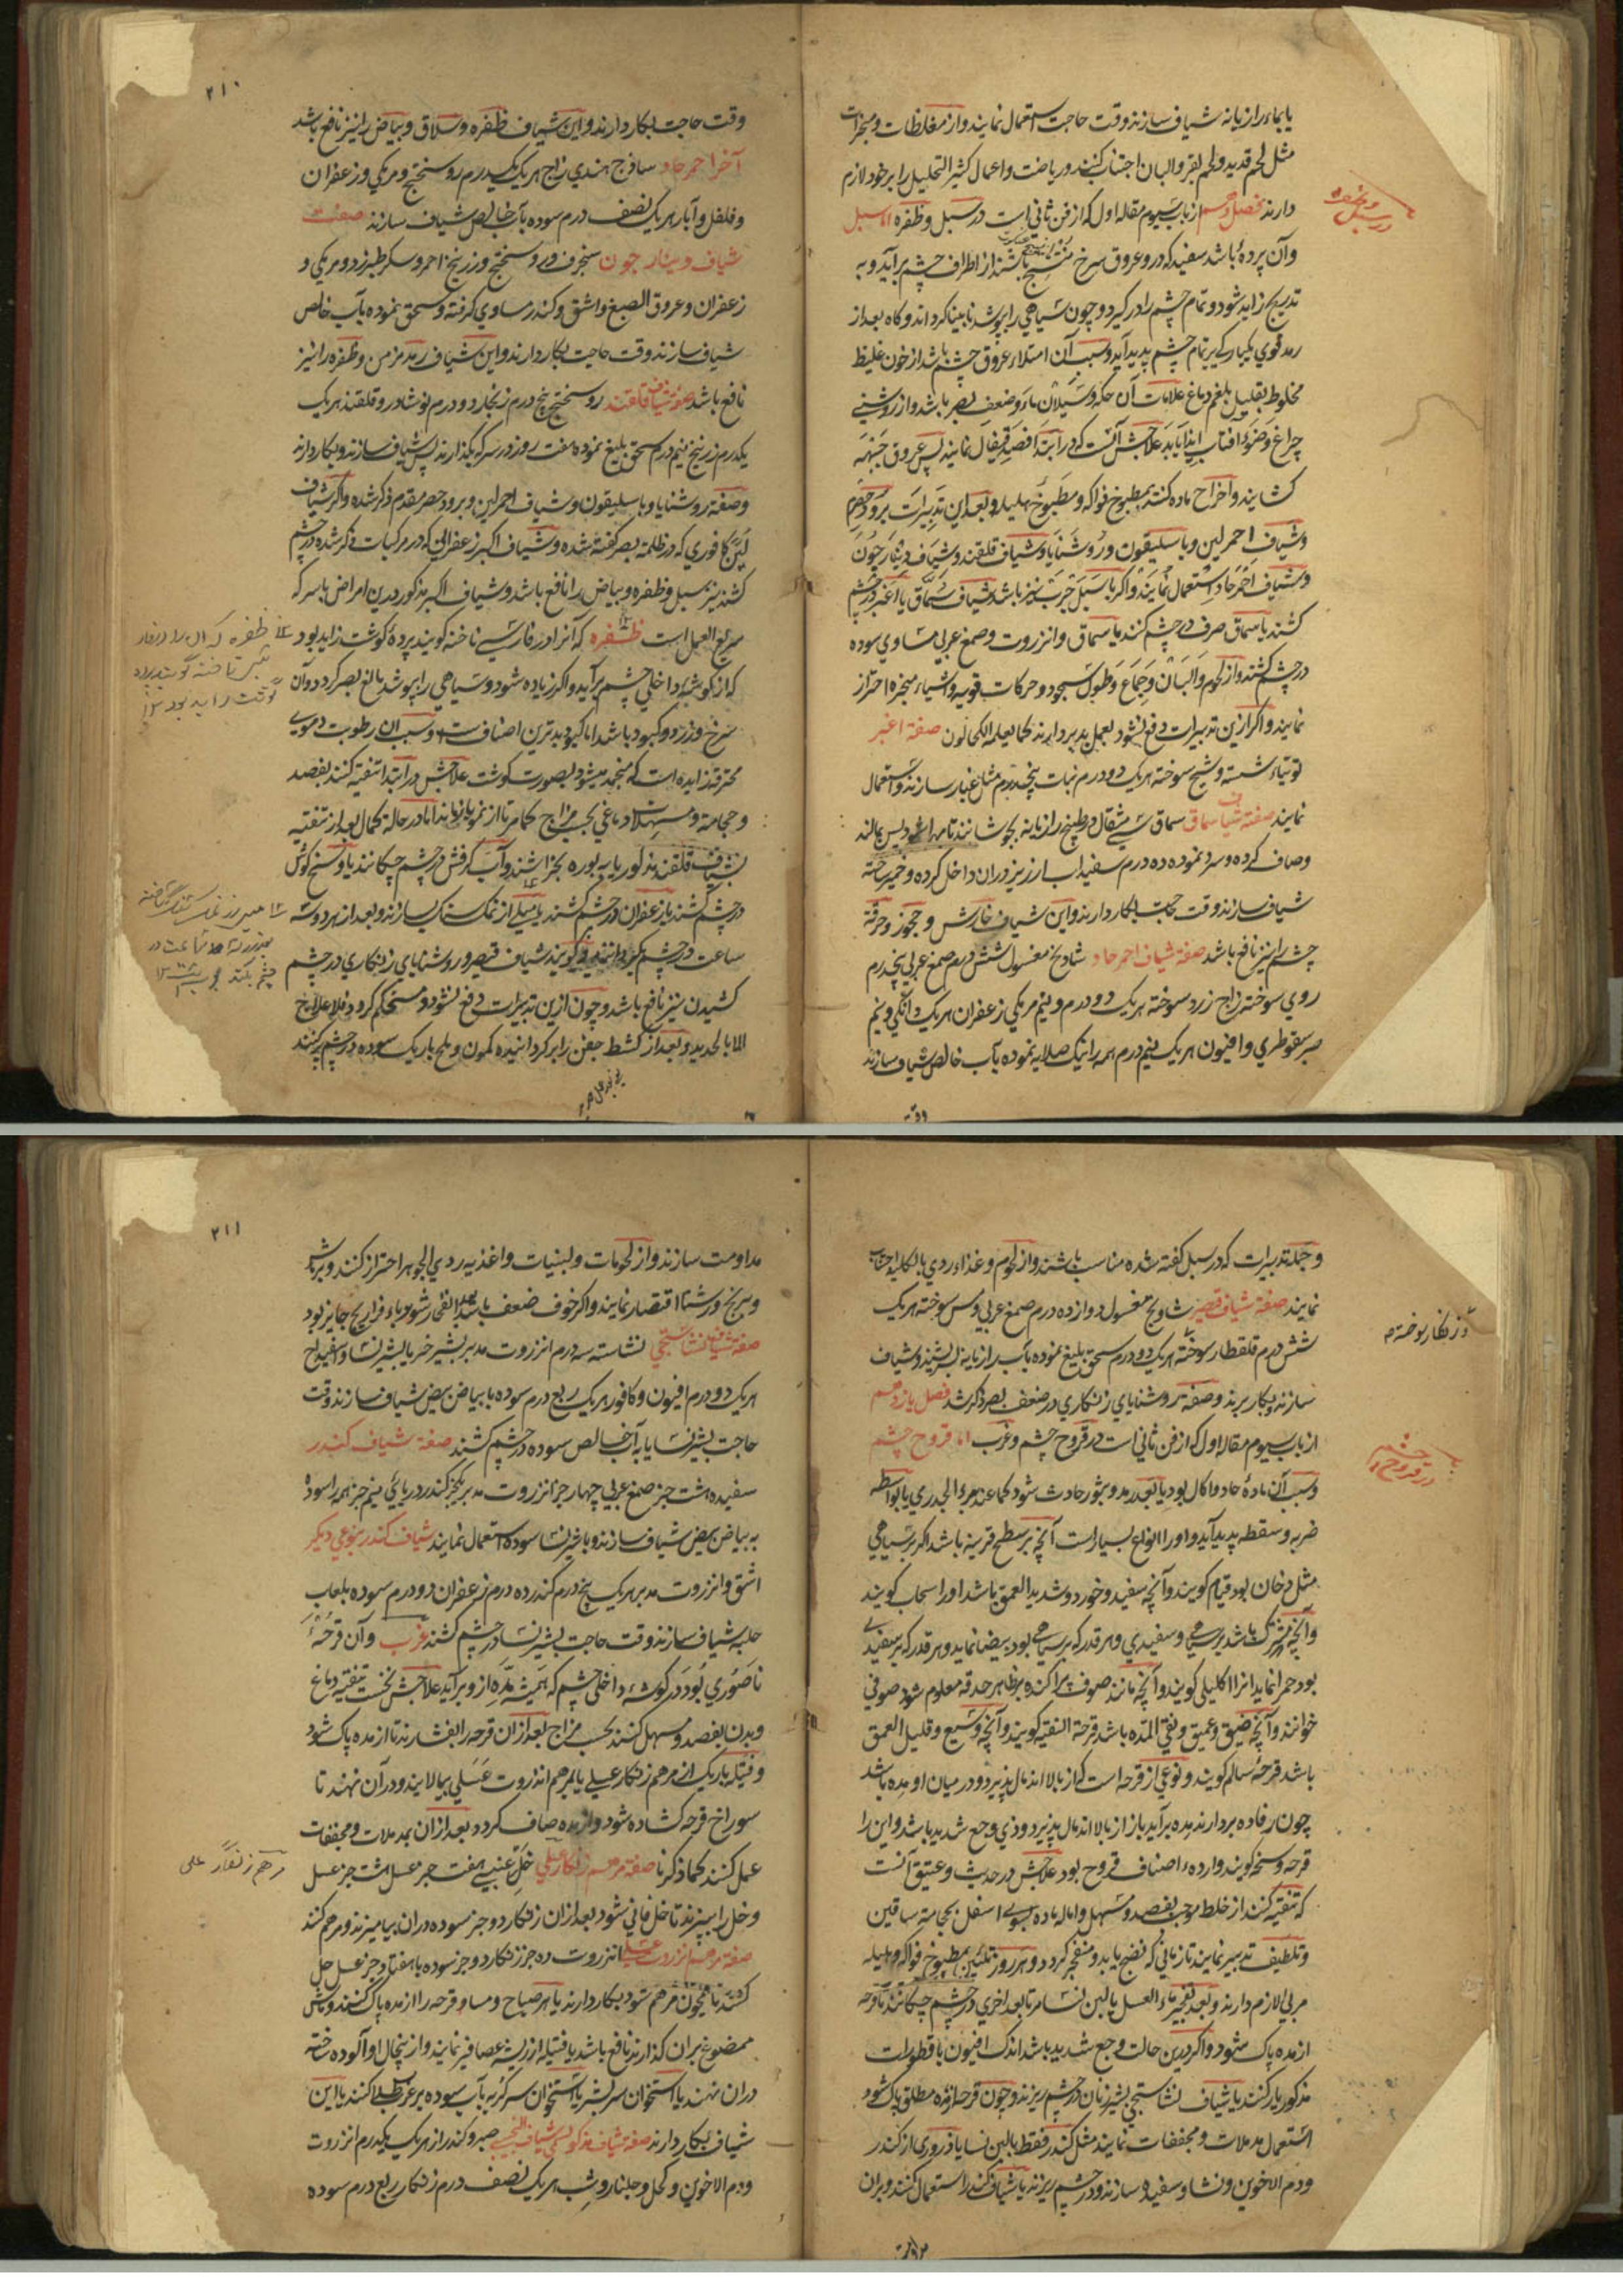 یا بماء رازیانه شیاف سازند وقت حاجت استعمال نمایند و از مغلظات و مبخرات
مثل لحم قدید و لحم بقر و البان اجتناب کنند و ریاضت و اعمال کثیر التحلیل را بر خود لازم
دارند فصل دهم از باب سیوم مقاله اول که از فن ثانی است در سبل و ظفره اما سبل
و آن پرده باشد سفید که در و عروق سرخ منتسج باشند از اطراف چشم برآید و به
تدریج زاید شود و تمام چشم را در گیرد و چون سیاهی را بپوشد نابینا گرداند و گاه بعد از
رمد قوی یکبارگی بر تمام چشم پدید آید و سبب آن امتلاء عروق چشم باشد از خون غلیظ
مخلوط بقلیل بلغم دماغ علامات آن حکه و سیلان ماء و ضعف بصر باشد و از روشنی
چراغ و ضوء آفتاب ایذا یابد علاجش آنست که در ابتدا فصد قیفال نمایند پس عروق جبهه
کشایند و اخراج ماده کنند بمطبوخ فواکه و مطبوخ هلیله و بعد این تدبیرات برود حصرم
و شیاف احمر لین و باسلیقون و روشنایا و شیاف قلقند و شیاف دینار جون
و شیاف احمر حاد استعمال نمایند و اگر با سبل جرب نیز باشد شیاف سماق یا اغبر در چشم
کشند یا سماق صرف در چشم کنند یا سماق و انزروت و صمغ عربی مساوی سوده
در چشم کشند و از لحوم و البان و جماع و طول سجود و حرکات قویه و اشیاء مبخره احتراز
نمایند و اگر ازین تدبیرات دفع نشود بعمل ید بردارند کما یعلمه الکحالون صفة اغبر
توتیاء شسته و شیح سوخته هر یک دو درم نبات پنجدرم مثل غبار سازند و استعمال
نمایند صفة شیاف سماق سماق سی مثقال در طبیخ رازیانه بجوشانند تا مهرا شود پس بمالند
وصاف کرده و سرد نموده ده درم سفیداب ارزیز در ان داخل کرده و خمیر ساخته
شیاف سازند وقت حاجت بکار دارند و این شیاف خارش و جحوز و حرقة
چشم را نیز نافع باشد صفة شیاف احمر حاد شادنج مغسول شش درم صمغ عربی پنجدرم
روی سوخته زاج زرد سوخته هر یک دو درم و نیم مر مکی زعفران هر یک دانگی و نیم
صبر سقوطری و افیون هر یک نیم درم همه را نیک صلایه نموده بآب خالص شیاف سازند
وقت
در سبل و ظفره
۲۱۰
وقت حاجت بکار دارند و این شیاف ظفره و سلاق و بیاض را نیز نافع باشد
آخر احمر حاد ساذج هندی زاج هر یک یکدرم روسختج و مر مکی و زعفران
و فلفل و آبار هر یک نصف درم سوده بآب خالص شیاف سازند صفت
شیاف دینار جون سنجرف و روسختج و زرنیخ احمر و سکر طبرزد و مر مکی و
زعفران و عروق الصبغ و اشق و کندر مساوی گرفته و سحق نموده بآب خالص
شیاف سازند وقت حاجت بکار دارند و این شیاف رمد مزمن و ظفره را نیز
نافع باشد صفة شیاف قلقند روسختج پنج درم زنجار دو درم نوشادر و قلقند هر یک
یکدرم زرنیخ نیم درم سحق بلیغ نموده هفت روز در سرکه بگذارند پس شیاف سازند و بکار دارند
وصفة روشنایا و باسلیقون و شیاف احمر لین و برود حصرم مقدم ذکر شده و اگر شیاف
لین کافوری که در ظلمة بصر گفته شده و شیاف اکبر زعفرانی که در مرکبات ذکر شده در چشم
کشند نیز سبل و ظفره و بیاض را نافع باشد و شیاف اکبر مذکور درین امراض باسرکه
سریع العمل است ظفره که آنرا در فارسی ناخنه گویند پردۀ گوشت زاید بود
که از گوشۀ داخلی چشم برآید و اگر زیاده شود و سیاهی را بپوشد مانع بصر گردد و آن
سرخ و زرد و کبود باشد اما کبود بدترین اصناف ست و سبب آن رطوبت دموی
محترقه زایده است که منجمد میشود بصورت گوشت علاجش در ابتدا تنقیه کنند بفصد
و حجامة و مسهلات دماغی بحسب مزاج کما مر تا از نمو باز ماند اما در حالة کمال بعد از تنقیه
بشیاف قلقند مذکور یا به بوره بخراشند و آب کرفش در چشم چکانند یا وسخ گوش
در چشم کشند یا زعفران در چشم کشند یا میلی از نمک سنگ بسازند و بعد از هر دو سه
ساعت در چشم بگردانند و گویند شیاف قیصر و روشنایای زنگاری در چشم
کشیدن نیز نافع باشد و چون ازین تدبیرات دفع نشود و مستحکم گردد فلا علاج
الا بالحدید و بعد از کشط جفن را برگردانیده کمون و ملح باریک سوده در چشم پر کنند
و جمله تدبیرات که در سبل گفته شده مناسب باشند و از لحوم و غذاء ردی بالکلیه اجتناب
نمایند صفة شیاف قیصر شادنج مغسول دوازده درم صمغ عربی و مس سوخته هر یک
شش درم قلقطار سوخته هر یک دو درم سحق بلیغ نموده بآب رازیانه بسریشند و شیاف
سازند و بکار برند و صفة روشنایای زنگاری در ضعف بصر ذکر شد فصل یازدهم
از باب سیوم مقاله اول که از فن ثانی است در قروح چشم و غرب اما قروح چشم
و سبب آن مادۀ حاد و اکال بود یا بعد رمد و بثور حادث شود کما عند برء الجدری یا بواسطه
ضربه و سقطه پدید آید و او را انواع بسیارست آنچه بر سطح قرنیه باشد اگر بر سیاهی
مثل دخان بود قتام گویند و آنچه سفید و خورد و شدید العمق باشد او را سحاب گویند
و آنچه مشترک باشد بر سیاهی و سفیدی و هر قدر که بر سیاهی بود بیضا نماید و هر قدر که بر سفیدی
بود حمرا نماید آنرا اکلیلی گویند و آنچه مانند صوف پراکنده بر ظاهر حدقه معلوم شود صوفی
خوانند و آنچه ضیق و عمیق و نقی المده باشد قرحة النقیه گویند و آنچه وسیع و قلیل العمق
باشد قرحۀ سالم گویند و نوعی از قرحه است که از بالا اندمال پذیرد و در میان او مده باشد
چون رفاده بردارند مده برآید باز از بالا اندمال پذیرد و ذی وجع شدید باشد و این را
قرحه وسخه گویند و ارده اصناف قروح بود علاجش در حدیث و عتیق آنست
که تنقیه کنند از خلط موجب بفصد و مسهل و اماله ماده بسوی اسفل بحجامة ساقین
و تلطیف تدبیر نمایند تا زمانی که نضج یابد و منفجر گردد و هر روز تلیین بمطبوخ فواکه و هلیله
مربی لازم دارند و بعد تفجیر ماء العسل یا لبن النسا مرة بعد اخری در چشم چکانند تا قرحه
از مده پاک شود و اگر درین حالت وجع شدید باشد اندک افیون با قطورات
مذکور یار کنند یا شیاف نشاستجی بشیر زنان در چشم ریزند و چون قرحه از مده مطلق پاک شود
استعمال مدملات و مجففات نمایند مثل کندر فقط بالبن نسا یا ذروری از کندر
و دم الاخوین و نشا و سفیده سازند و در چشم ریزند یا شیاف کندر استعمال کنند و بران
مداومت
و زنگار سوخته
در قروح چشم
۲۱۱
مداومت سازند و از لحومات و لبنیات و اغذیه ردی الجوهر احتراز کنند و بر ماش
و برنج و رشتا اقتصار نمایند و اگر خوف ضعف باشد بعد انفجار شوربای فراریج جایز بود
صفة شیاف نشاستجی نشاسته سه درم انزروت مدبر بشیر خر یا بشیر نسا و اسفیداج
هر یک دو درم افیون و کافور هر یک ربع درم سوده با بیاض بیض شیاف سازند وقت
حاجت بشیر نسا یا به آب خالص سوده در چشم کشند صفة شیاف کندر
سفیده هشت جز صمغ عربی چهار جز انزروت مدبر یکجز کندر دریایی نیم جز همه را سوده
به بیاض بیض شیاف سازند و باشیر نسا سوده استعمال نمایند شیاف کندر بنوعی دیگر
اشق و انزروت مدبر هر یک پنج درم کندر ده درم زعفران دو درم سوده بلعاب
حلبه شیاف سازند وقت حاجت بشیر نسا در چشم کشند غرب و آن قرحۀ
ناصوری بود در گوشه داخلی چشم که همیشه مده از و برآید علاجش نخست تنقیه دماغ
و بدن بفصد و مسهل کنند بحسب مزاج بعد ازان قرحه را بفشارند تا از مده پاک شود
و فتیله باریک از مرهم زنگار عسلی یا بمرهم انذروت عسلی بیالایند و در آن نهند تا
سوراخ قرحه کشاده شود و از مده صاف گردد بعد ازان بمدملات و مجففات
عمل کنند کما ذکرنا صفة مرهم زنگار عسلی خل عنبی هفت جز عسل هشت جز عسل
و خل را بپزند تا خل فانی شود بعد ازان زنگار دو جز سوده دران بیامیزند و مرهم کنند
صفة مرهم انزروت عسلی انزروت ده جز زنگار دو جز سوده با هفتاد جز عسل حل
کنند تا همچون مرهم شود بکار دارند یا هر صباح و مسا و قرحه را از مده پاک کنند و ماش
ممضوغ بران گذارند نافع باشد یا فتیله از ریشه عصافیر نمایند و از پنجال او آلوده ساخته
دران نهند یا استخوان سر بشر یا استخوان سر گربه بآب سوده بر غرب طلا کنند یا این
شیاف بکار دارند صفة شیاف مذکور صبر و کندر از هر یک یکدرم انزروت
و دم الاخوین و کحل و جلنار و شب هر یک نصف درم زنگار ربع درم سوده
مرهم زنگار عسلی